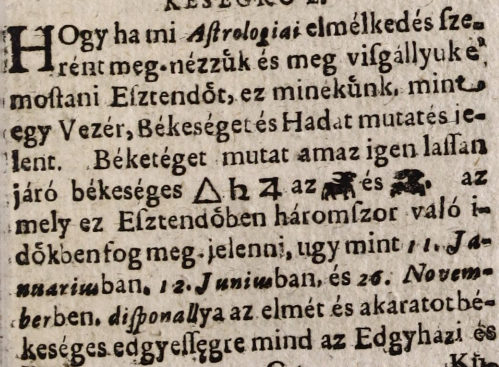 HOgy ha mi Aſtrologiai elmélkedés ſze-
rént meg-nézzük és meg viſgállyuk e'
moſtani Eſztendőt, ez minékünk, mint
egy Vezér, Békeséget és Hadat mutat és je-
lent. Béketéget mutat amaz igen laſſan
járó békeséges △ ♄ ♃ az ♉ és az
mely ez Eſztendőben háromſzor való i-
dőkben fog meg-jelenni, ugy mint 11. Ja-
nuariusban, 12. Juniusban, és 26. Novem-
berben. diſponallya az elmét és akaratot bé-
keséges edgyeſſegre mind az Edgyházi és